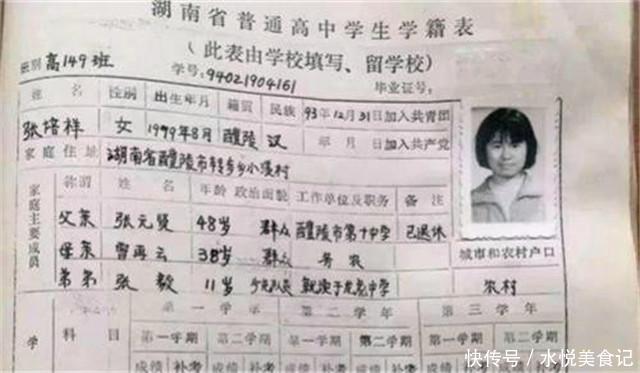 湖南省普通高中学生学籍表
（此表由学校填写、留学校）
班别 高149班 学号:94021904161 毕业证号:
姓名 性别 出生年月 籍贯 民族 93年12月31日加入共青团
张培祥 女 1979年8月 醴陵 汉 年 月 日加入共产党
家庭住址 湖南省醴陵市转步乡小溪村
家庭主要成员 称谓 姓名 年龄 政治面貌 工作单位及职务 备注
父亲 张元贤 48岁 群众 醴陵市第十中学 已退休
城市和农村户口
母亲 曾再云 38岁 群众 务农
弟弟 张毅 11岁 少先队员 就读于 中学 农村
第一学年 第二学年 第三学年
学 科目 第一学期 第二学期 第一学期 第二学期 第一学期 第二学期
成绩 补考 成绩 补考 成绩 补考 成绩 补考 成绩 补考
快传号／水悦美食记